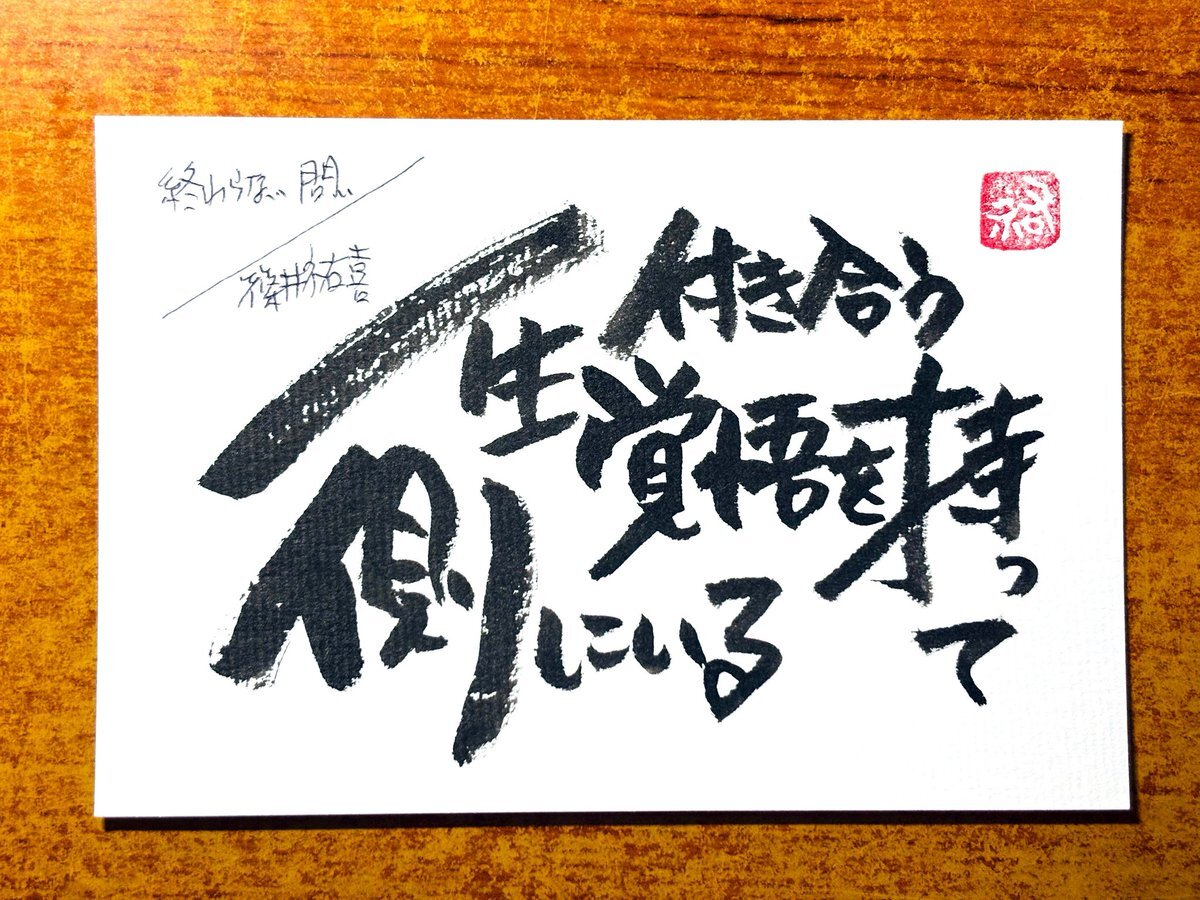 終わらない問い
篠井祐喜
一生付き合う
覚悟を持って
側にいる